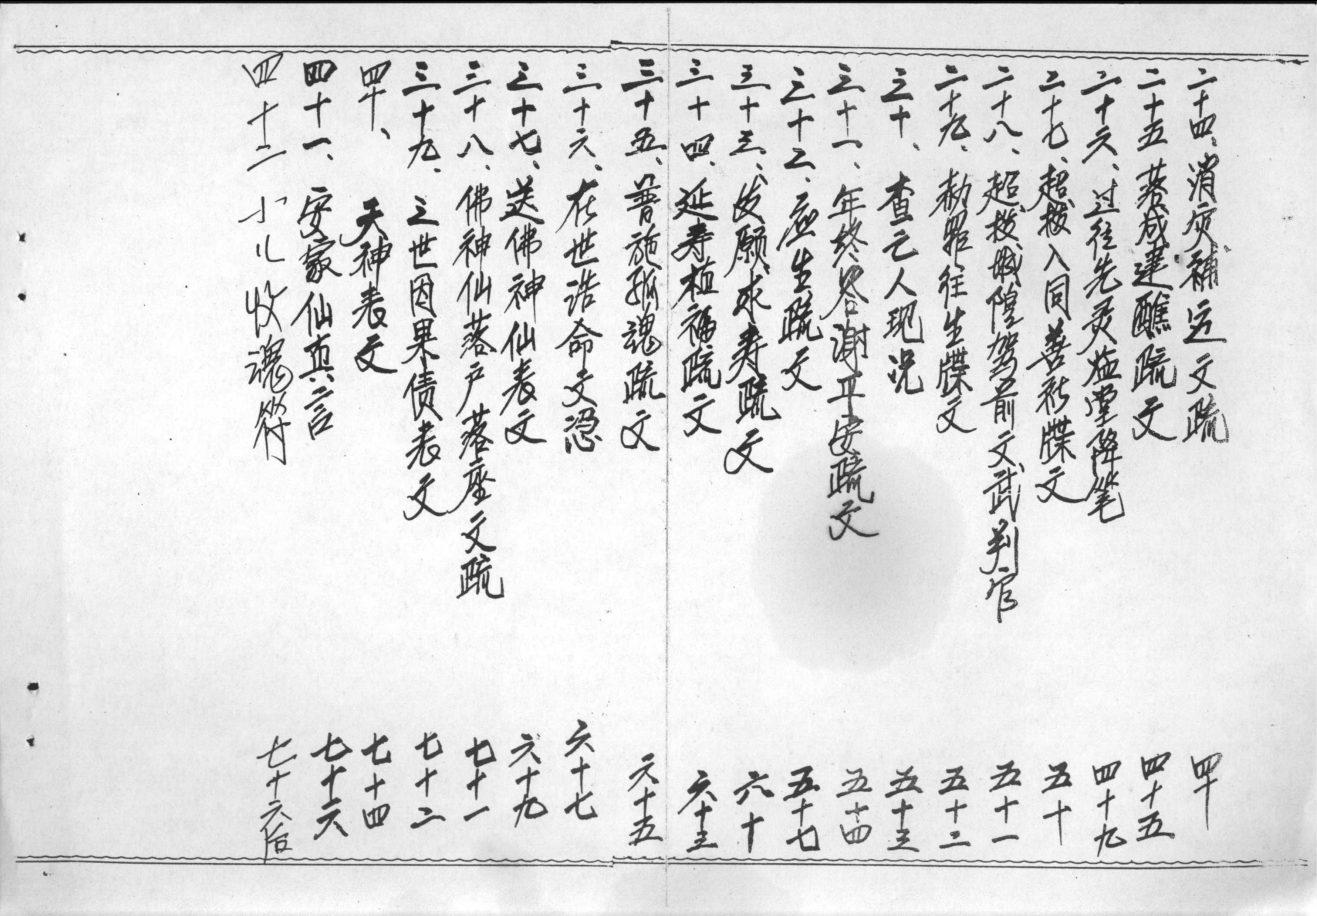 二十四、消灾补运文疏 四十
二十五 落成建醮疏文 四十五
二十六、过往先灵临堂降笔 四十九
二十七、超拔入同善社牒文 五十
二十八、超拔城隍驾前文武判官 五十一
二十九、赦罪往生牒文 五十二
三十、查亡人现况 五十三
三十一、年终答谢平安疏文 五十四
三十二、应生疏文 五十七
三十三、发愿求寿疏文 六十
三十四、延寿植福疏文 六十三
三十五、普施孤魂疏文 六十五
三十六、在世诰命文凭 六十七
三十七、送佛神仙表文 六十九
三十八、佛神仙落户落座文疏 七十一
三十九、三世因果债表文 七十二
四十、天神表文 七十四
四十一、安家仙真言 七十六
四十二 小儿收魂符 七十六后